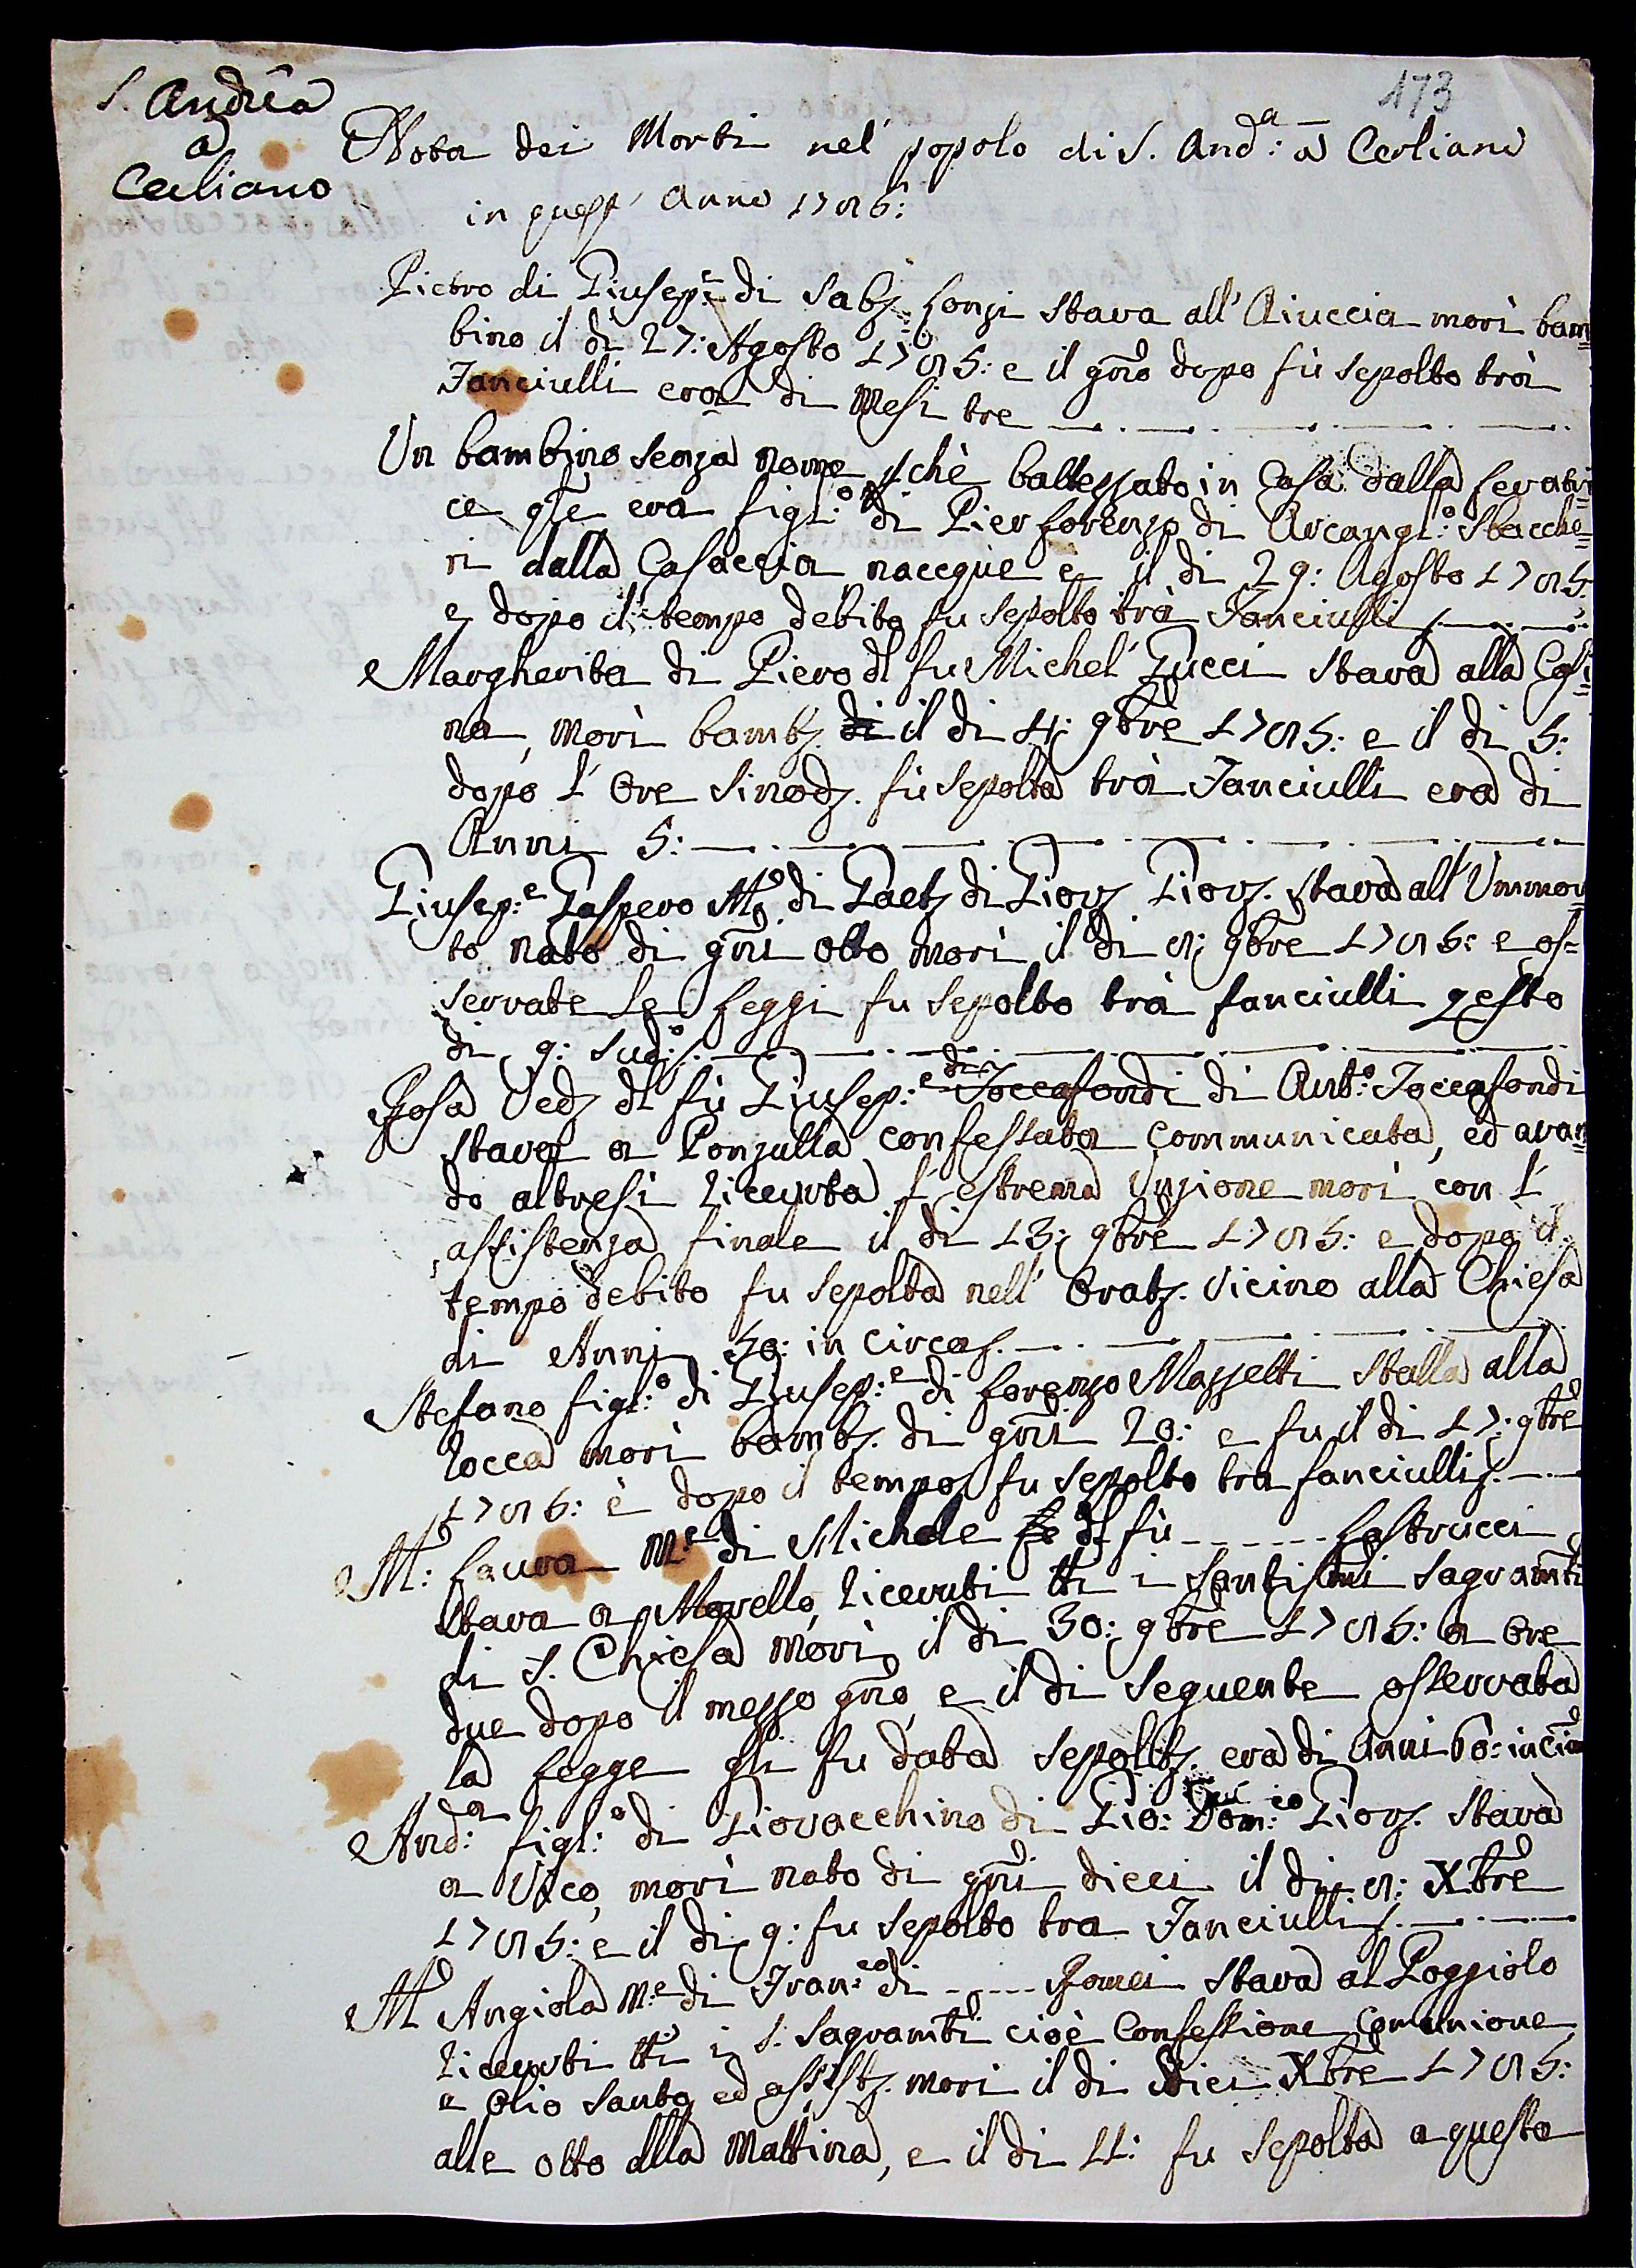 173
S. Andrea
a
Cerliano
Nota dei Morti nel' popolo di S. And:ª a Cerliano
in quest' Anno 1786:
Pietro di Giusep:e di Sabª Lonzi stava all' Aiuccia morì bam=
bino il dì 27: Agosto 1785: e il gno dopo fù sepolto trà
Fanciulli era di Mesi tre
Un bambino senza nome pchè battezzato in Casa dalla levatri=
ce qle era figl:o di Pier Lorenzo di Arcangl:o Stacche=
ni dalla Casaccia nacque e il di 29: Agosto 1785
e dopo il tempo debito fu sepolto trà Fanciulli
Margherita di Piero dl fu Michel' Pucci stava alla Casi=
na, morì bamb. di il di 4: 9bre 1785: e il di 5:
dopo l' Ore Sinod. fù sepolta trà Fanciulli era di
Anni 5:
Giusep:e Gaspero Mª di Gaet di Giov Giov. stava all' Ummor
to nato di gni otto morì il di 8: 9bre 1785: e os=
servate le Leggi fu sepolto trà fanciulli gesto
di 9: Sud.
Rosa Ved dl fù Giusep:e di Toccafondi di Ant:o Toccafondi
stava a Ponzalla confessata communicata, ed aven=
do altresì ricevuta l' estrema Unzione morì con l'
assistenza finale il di 13: 9bre 1785: e dopo il
tempo debito fu sepolta nell' Orat. vicino alla Chiesa
di Anni 50: in circa
Stefano figl:o di Giusep:e di Lorenzo Mazzetti Stalla alla
rocca morì bamb. di gni 20: e fu il di 17: 9bre
1785: è dopo il tempo fu sepolto tra fanciulli
M: Laura M:e di Michele fe dl fù - - - - - - Lastrucci
stava a Morello, ricevuti tti i Santissimi Sagramti
di S. Chiesa morì il di 30: 9bre 1785: a Ore
due dopo il mezzo gno, e il di seguente osservata
la Legge gli fu data sepolt. era di Anni 60: in cir
And:ª figl:o di Giovacchino di Gio: Dom:co Giov. stava
a Vico, morì nato di gni dieci il di 8: Xbre
1785: e il di 9: fu sepolto tra Fanciulli
M Angiola M:e di Fran:co di - - - - Romei stava al Poggiolo
ricevuti tti i S. Sagramti cioè Confessione Comunione
e Olio Santo ed assist. morì il di dieci Xbre 1785:
alle otto dlla Mattina, e il di 11: fu sepolta a questa